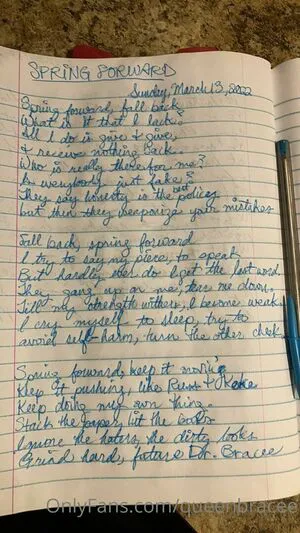 SPRING FORWARD
Sunday, March 13, 2022
Spring forward, fall back
What is it that I lack?
All I do is give & give,
& receive nothing back.
Who is really there for me?
Is everybody just fake?
They say honesty is the best policy
but then they weaponize your mistakes
Fall back, spring forward
I try to say my piece, to speak
But hardly ever do I get the last word
They gang up on me, tear me down.
Till my strength withers, I become weak
I cry myself to sleep, try to
avoid self-harm, turn the other cheek.
Spring forward, keep it movin'
Keep it pushing, like Rush + Keke
Keep doing my own thing.
Stack the paper, hit the books
Ignore the haters, the dirty looks
Grind hard, future Dr. Bracee
OnlyFans.com/queenbracee